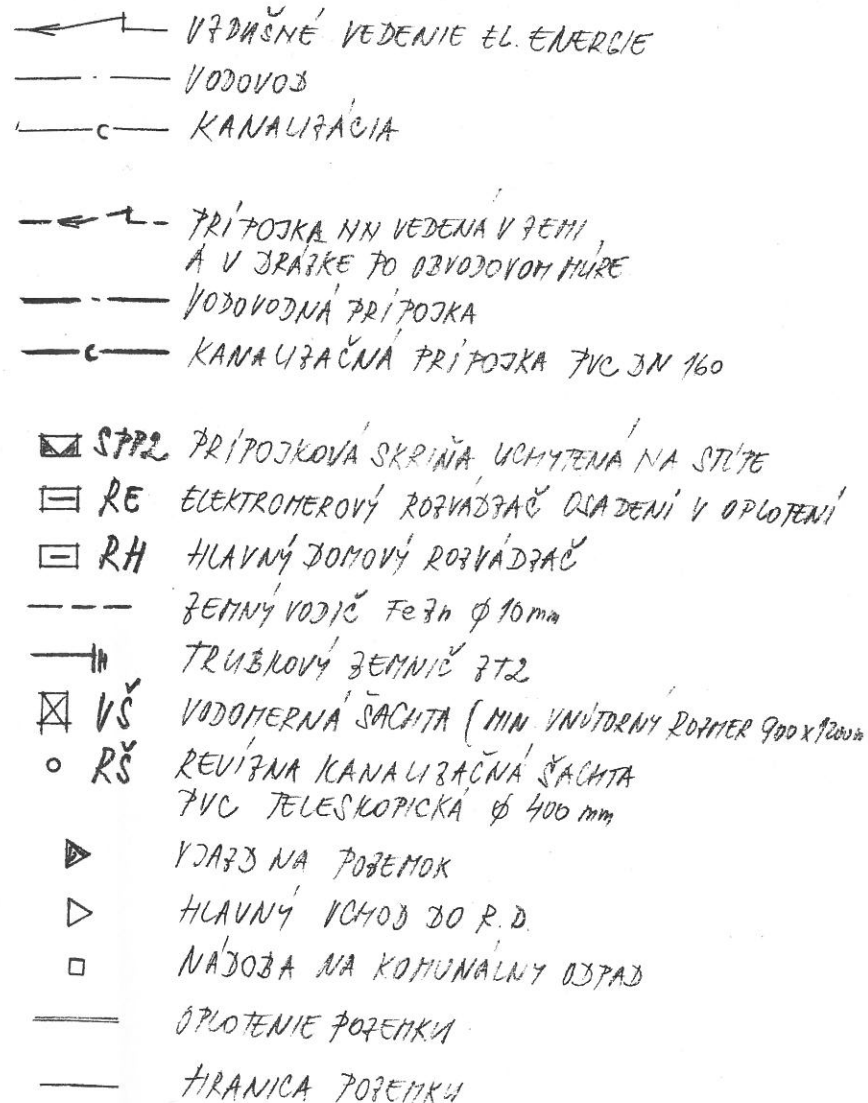 VZDUŠNÉ VEDENIE EL. ENERGIE
VODOVOD
C KANALIZÁCIA
PRÍPOJKA NN VEDENÁ V ZEMI
A V DRÁŽKE PO OBVODOVOM MÚRE
VODOVODNÁ PRÍPOJKA
C KANALIZAČNÁ PRÍPOJKA PVC DN 160
SPP2 PRÍPOJKOVÁ SKRIŇA UCHYTENÁ NA STĹPE
RE ELEKTROMEROVÝ ROZVÁDZAČ OSADENÍ V OPLOTENÍ
RH HLAVNÝ DOMOVÝ ROZVÁDZAČ
ZEMNÝ VODIČ FeZn ϕ 10mm
TRUBKOVÝ ZEMNIČ ZT2
VŠ VODOMERNÁ ŠACHTA (MIN VNÚTORNÝ ROZMER 900x1200m
RŠ REVÍZNA KANALIZAČNÁ ŠACHTA
PVC TELESKOPICKÁ ϕ 400 mm
VJAZD NA POZEMOK
HLAVNÝ VCHOD DO R.D.
NÁDOBA NA KOMUNÁLNY ODPAD
OPLOTENIE POZEMKU
HRANICA POZEMKU